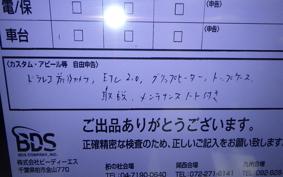 電/保 □ □ □ (申告)
車台 □ □ □ (申告)
(カスタム・アピール等 自由申告)
ドラレコ前後カメラ, ETC 2.0, グリップヒーター, トップケース
取説, メンテナンスノート付き
BDS
BDS COMPANY, INC.
株式会社ビーディーエス
千葉県柏市金山770
ご出品ありがとうございます。
正確精密な検査のため、正しいご記入をお
柏の会場
TEL:04-7190-0540
関西会場
TEL:072-271-6141
九州会場
TEL:092-829